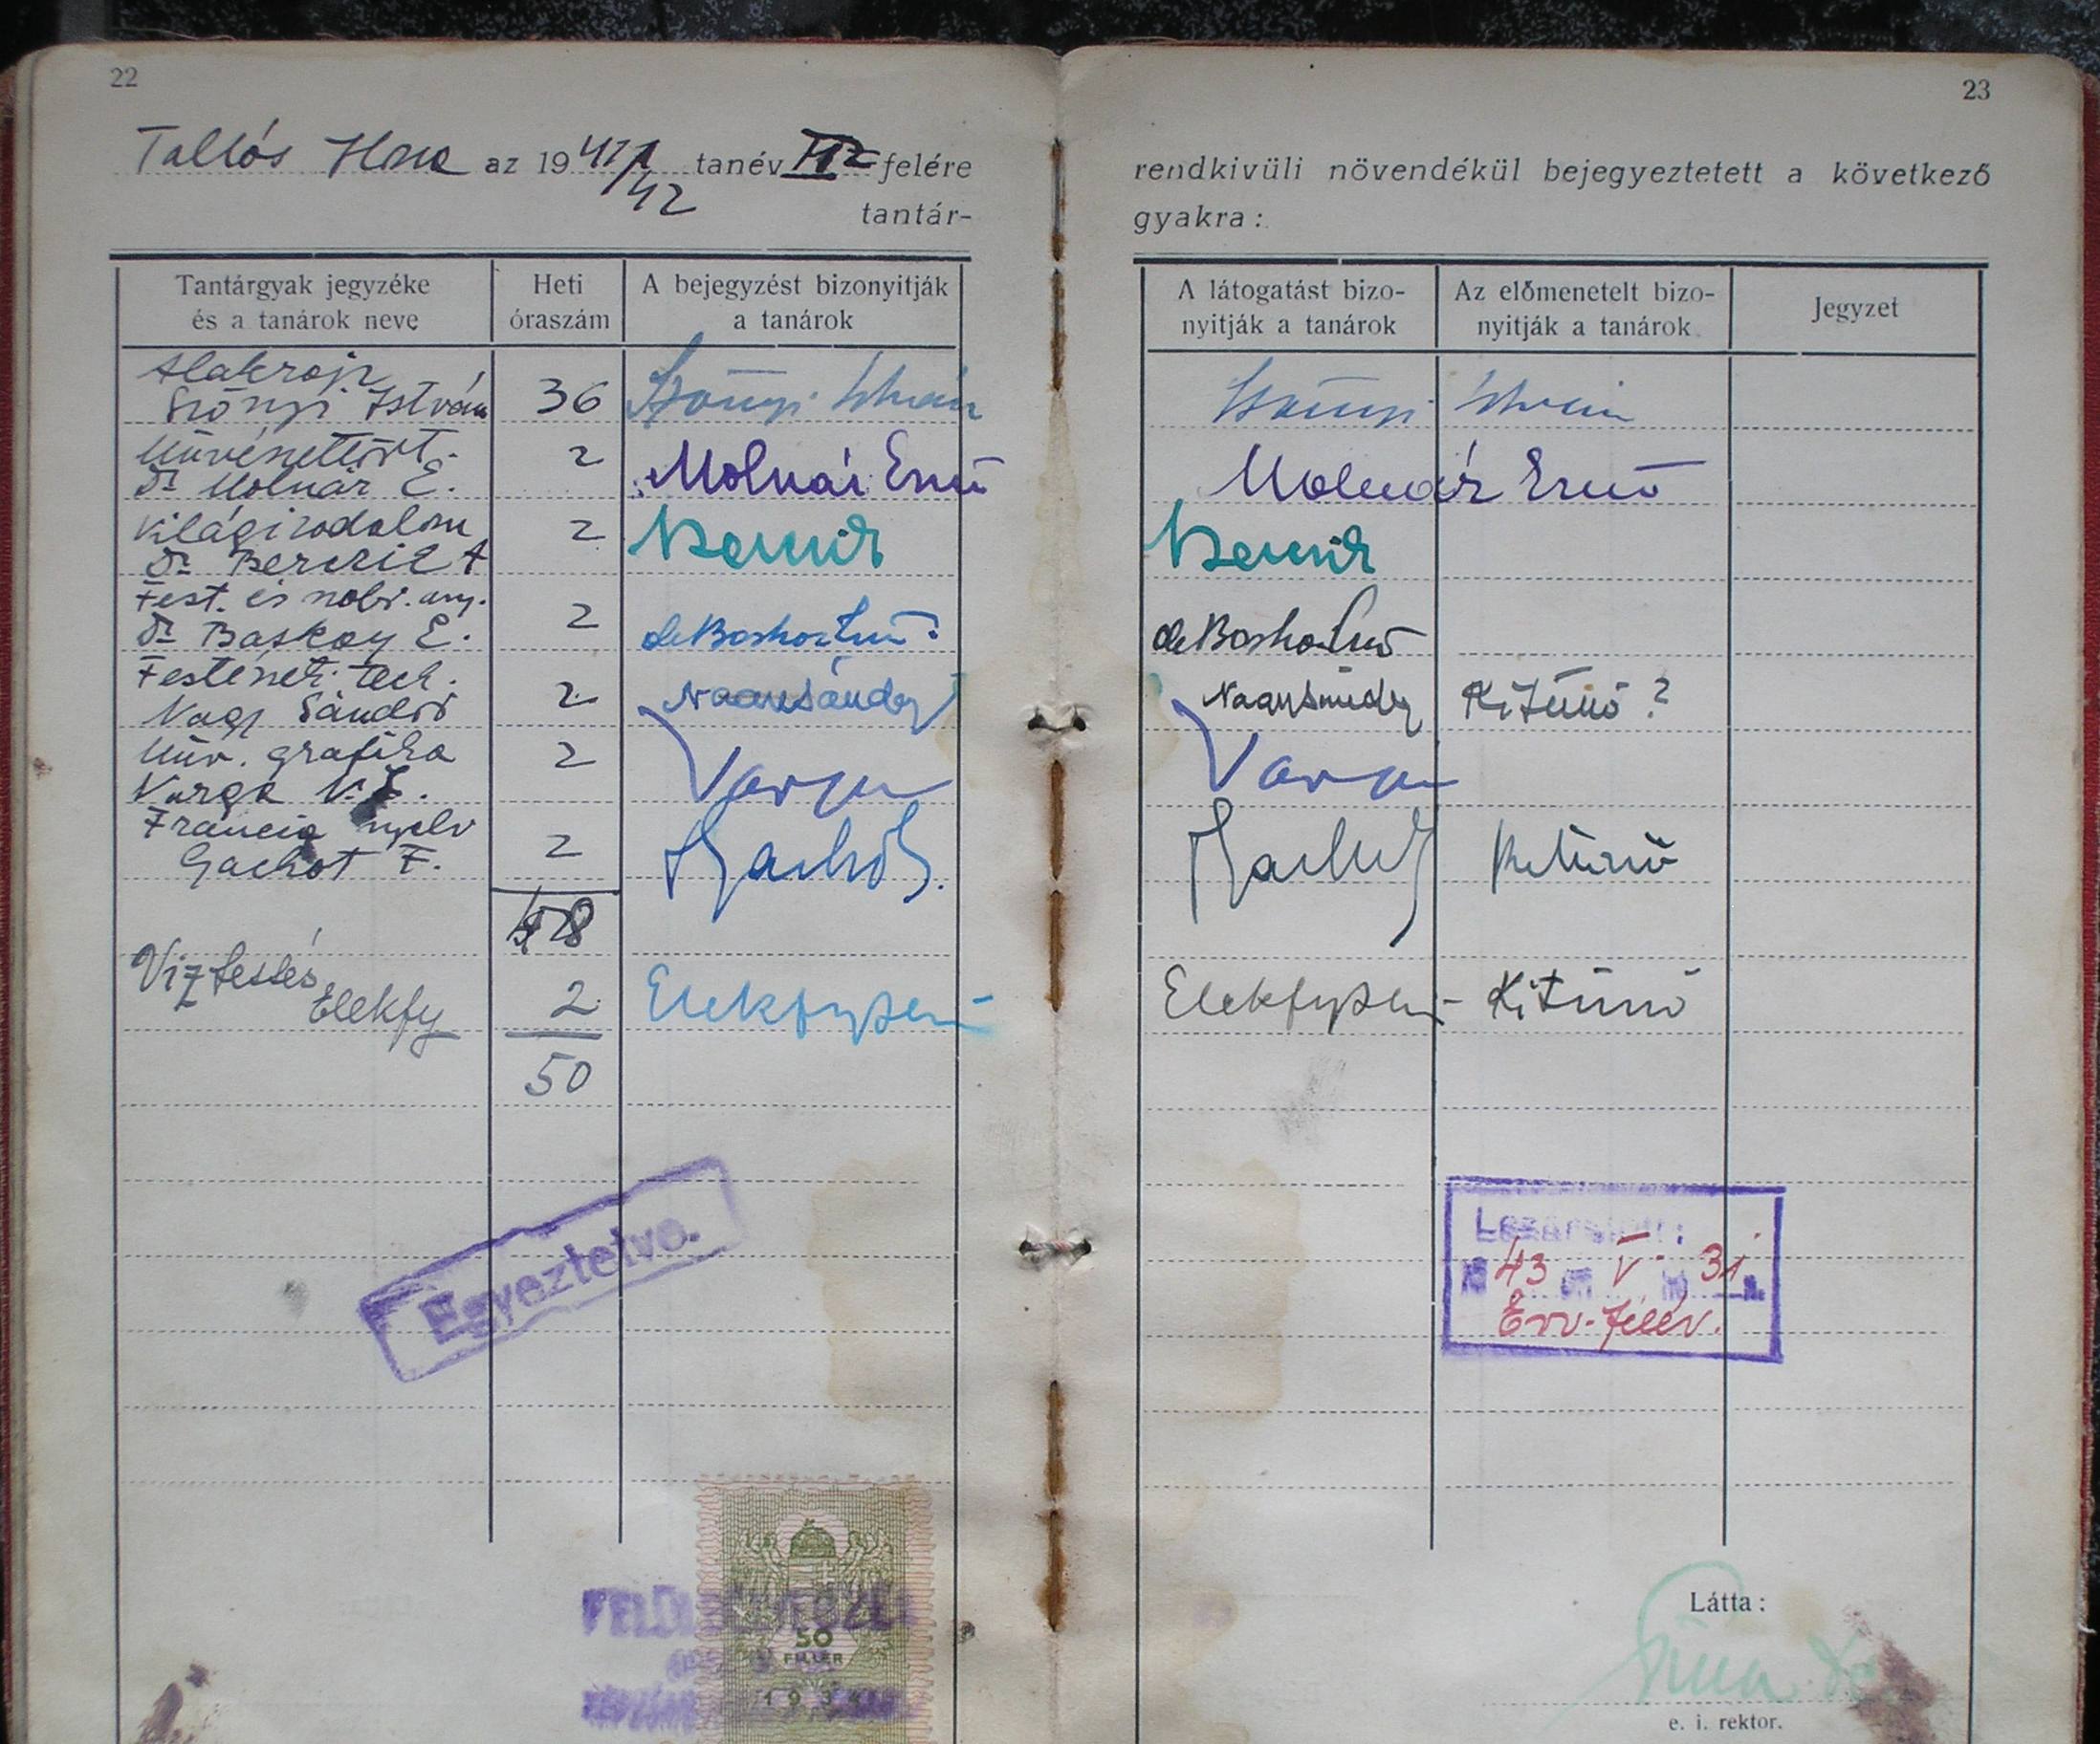 22
Tallós Ilona az 1941/42 tanév felére
tantár-
Tantárgyak jegyzéke
és a tanárok neve
Heti
óraszám
A bejegyzést bizonyitják
a tanárok
Alakrajz
Szőnyi István 36 Szőnyi István
Művészettört. 2 Molnár Ernő
Dr Molnár E.
Világirodalom 2
Dr Berczik A
Fest. és szobr. any. 2
Dr Baskay E.
Festészeti tech. 2 Nagy Sándor
Nagy Sándor
Műv. grafika 2 Varga
Varga N. L.
Francia nyelv 2 Gachot
Gachot F.
48
Vizfestés
Elekfy 2 Elekfy Jenő
50
Egyeztetve.
50
FILLÉR
23
rendkivüli növendékül bejegyeztetett a következő
gyakra:
A látogatást bizo-
nyitják a tanárok
Az előmenetelt bizo-
nyitják a tanárok
Jegyzet
Szőnyi István
Molnár Ernő
Nagy Sándor Kitünő
Varga
Gachot Kitünő
Elekfy Jenő Kitünő
43 V 31
Érv. félév.
Látta:
e. i. rektor.